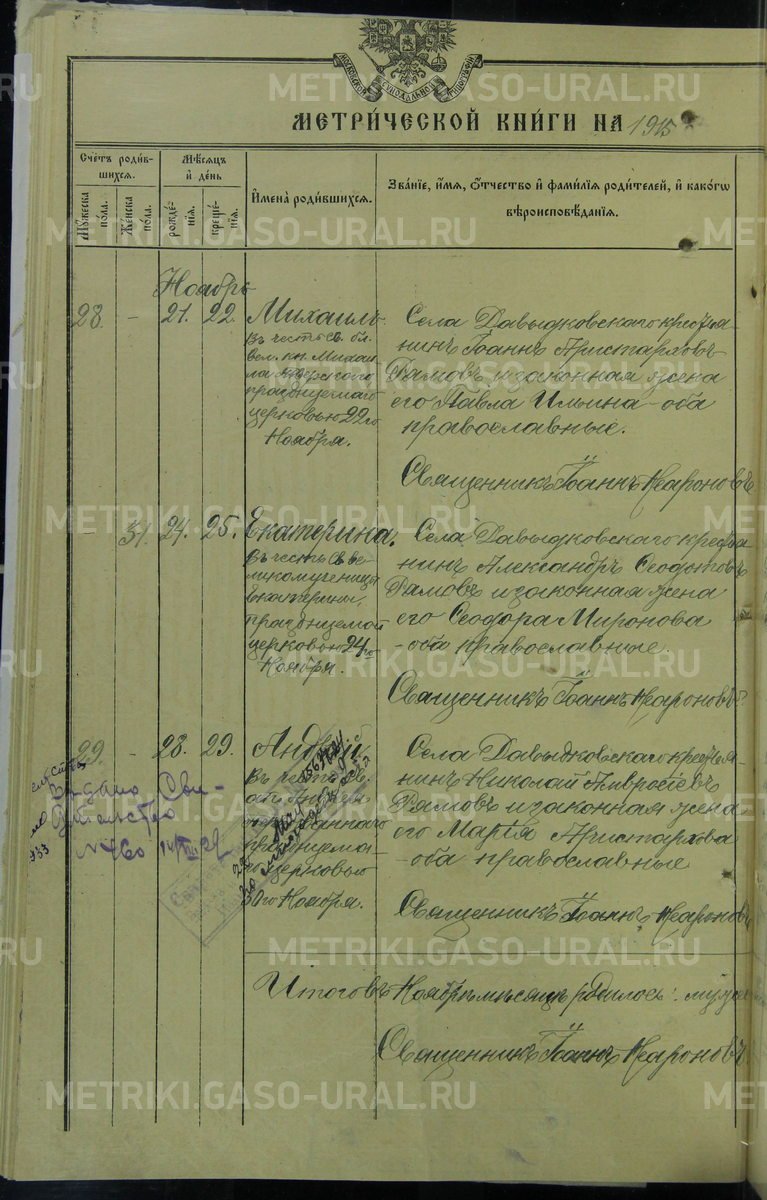 МЕТРИ́ЧЕСКОЙ КНИ́ГИ НА 1915
Сче́тъ роди́в-
шихся.
Мѣ́сяцъ
и́ де́нь
Му́жеска по́ла.
Же́нска по́ла.
рожде́-
нія.
креще́-
нія.
И҆мена̀ роди́вшихся.
Зва́нїе, и҆́мя, ѻ҆́тчество и҆ фами́лїя роди́телей, и҆ како́гѡ
вѣроисповѣ́данїя.
Ноябрь
28. - 21. 22. Михаилъ
въ честь св. бл.
вел. кн. Михаи
ла Тверского
празднуемаго
церковью 22го
Ноября.
Села Давыдковскаго крестья
нинъ Іоаннъ Аристарховъ
Рамовъ и законная жена
его Павла Ильина - оба
православные.
Священникъ Іоаннъ
- 31. 24. 25. Екатерина.
въ честь св ве-
ликомученицы
Екатерины,
празднуемой
церковью 24го
Ноября.
Села Давыдковскаго крестья
нинъ Александръ Ѳеодотовъ
Рамовъ и законная жена
его Ѳеодора Миронова
- оба православные.
Священникъ Іоаннъ
29. - 28. 29. Андрей
въ честь св.
ап. Андрея
Первозваннаго
празднуема-
го церковью
30го Ноября.
Села Давыдковскаго крестья
нинъ Николай Амвросіевъ
Рамовъ и законная жена
его Марія Аристархова
- оба православные
Священникъ Іоаннъ
Выдано Сви-
дѣтельство
N 460
Итого въ Ноябрѣ мѣсяцѣ родилось:
Священникъ Іоаннъ
METRIKI.GASO-URAL.RU